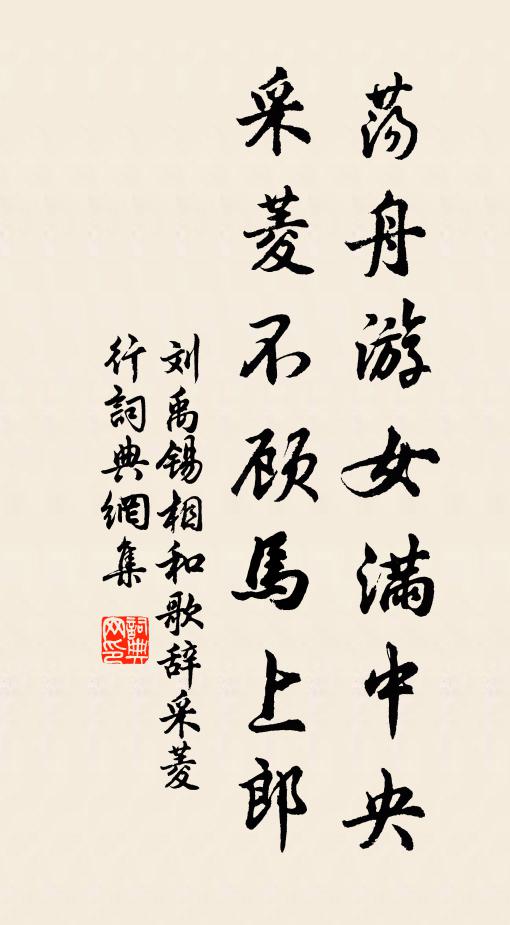 荡舟游女满中央
采菱不顾馬上郎
刘禹锡相和歌辞采菱
行詞典網集
詞典网印